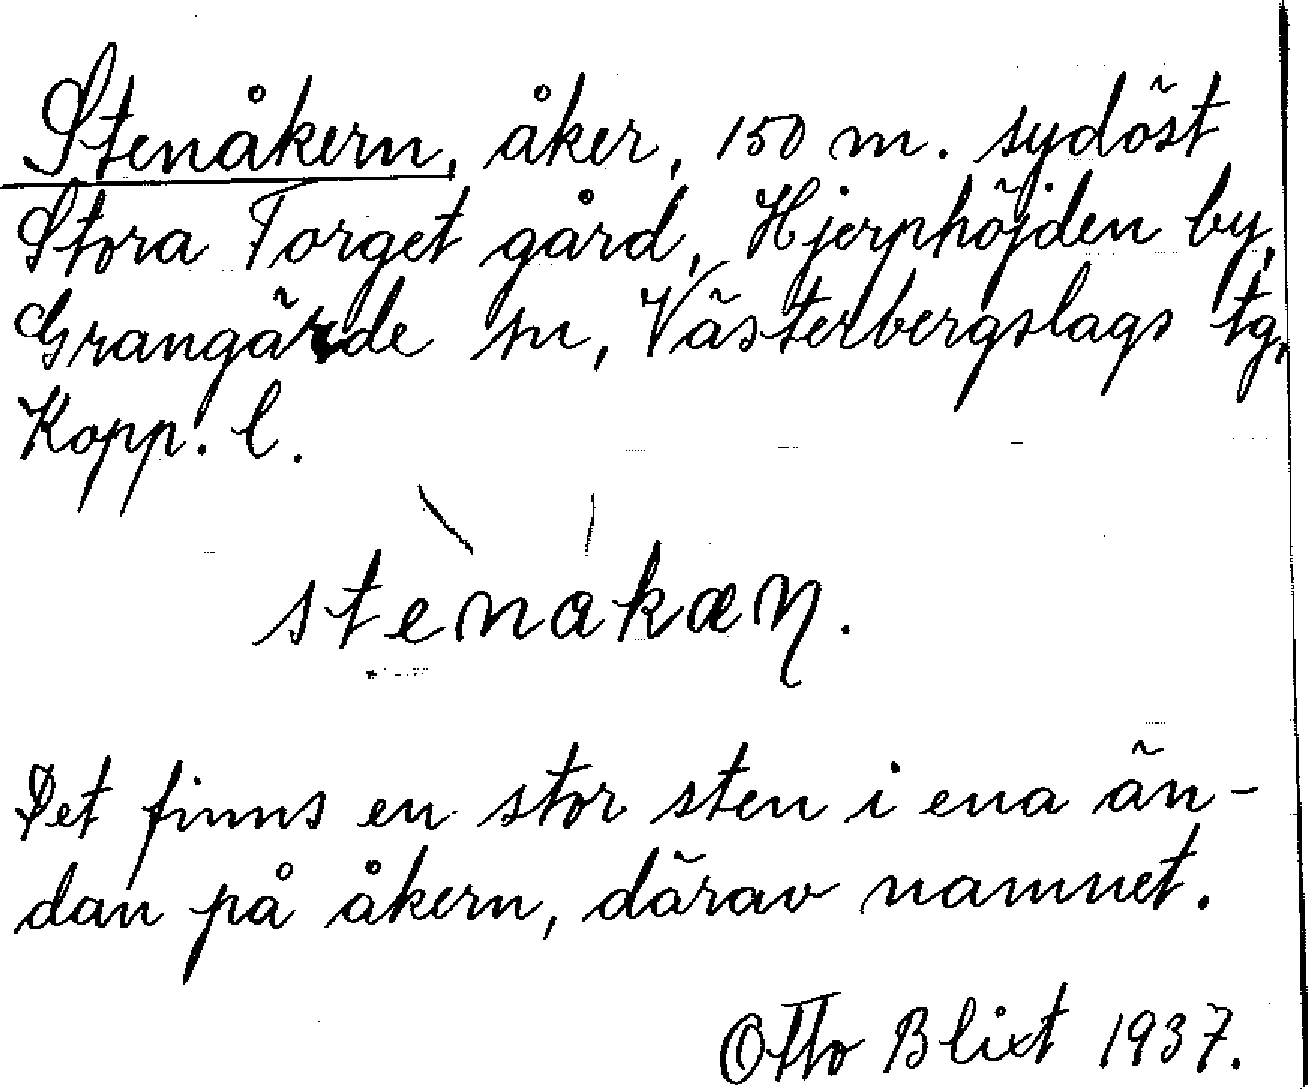 Stenåkern, åker, 150 m. sydöst
Stora Torget gård, Hjerphöjden by,
Grangärde sn, Västerbergslags tg,
Kopp. l.
stènakæŋ.
Det finns en stor sten i ena än-
dan på åkern, därav namnet.
Otto Blixt 1937.